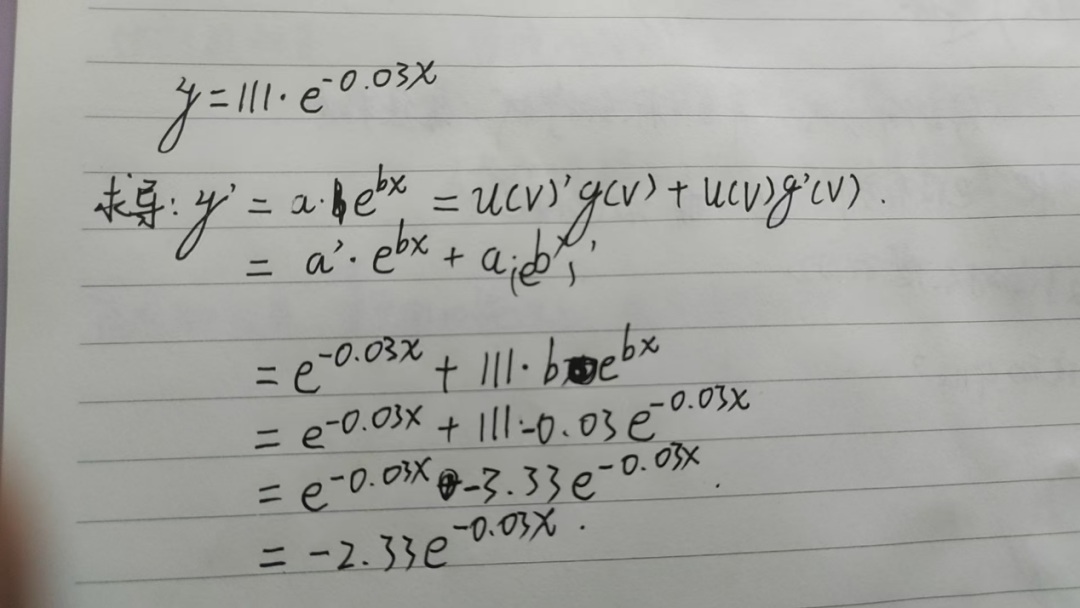 y=111·e^{-0.03x}
求导: y' = a·be^{bx} = u(v)'g(v)+u(v)g'(v).
= a'·e^{bx} + a(e^{bx})'
= e^{-0.03x} + 111·b e^{bx}
= e^{-0.03x} + 111·-0.03e^{-0.03x}
= e^{-0.03x} -3.33e^{-0.03x}.
= -2.33e^{-0.03x}.